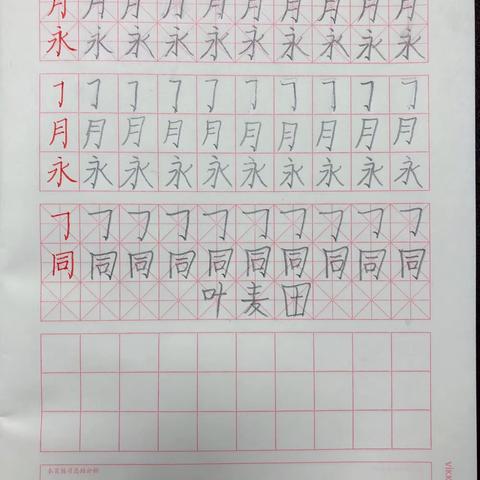 月月月月月月月月月月
永永永永永永永永永永
𠃌𠃌𠃌𠃌𠃌𠃌𠃌𠃌𠃌𠃌
月月月月月月月月月月
永永永永永永永永永永
𠃌𠃌𠃌𠃌𠃌𠃌𠃌𠃌𠃌𠃌
同同同同同同同同同同
叶麦田